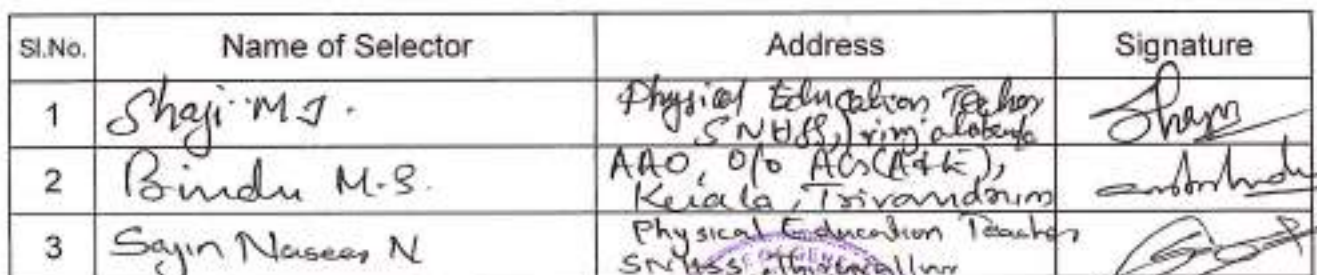 Sl.No. Name of Selector Address Signature
1 Shaji M.J. Physical Education Teacher
SNHSS, Irinjalakuda
2 Bindu M.S. AAO, O/o AG(A&E),
Kerala, Trivandrum
3 Sajin Naseer N Physical Education Teacher
SNHSS